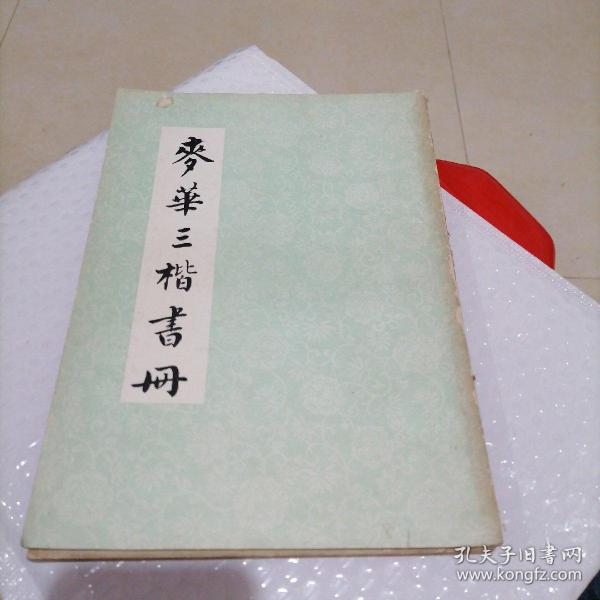 麥華三楷書冊
孔夫子旧書网
www.kongfz.com